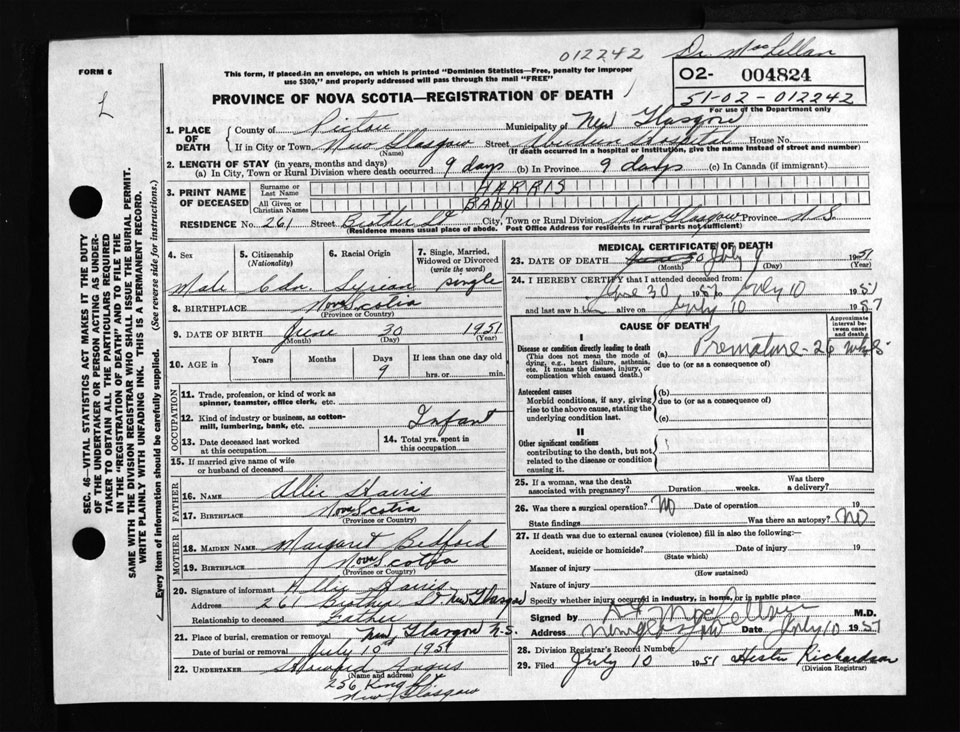 012242 Dr. MacLellan
FORM 6
This form, if placed in an envelope, on which is printed "Dominion Statistics—Free, penalty for improper
use $300," and properly addressed will pass through the mail "FREE"
O2- 004824
51-02-012242
For use of the Department only
PROVINCE OF NOVA SCOTIA—REGISTRATION OF DEATH
1. PLACE OF DEATH
County of Pictou Municipality of New Glasgow
If in City or Town New Glasgow Street Aberdeen Hospital House No.
(Name) (If death occurred in a hospital or institution, give the name instead of street and number)
2. LENGTH OF STAY (in years, months and days)
(a) In City, Town or Rural Division where death occurred 9 days (b) in Province 9 days (c) In Canada (if immigrant)
3. PRINT NAME OF DECEASED
Surname or Last Name HARRIS
All Given or Christian Names BABY
RESIDENCE No. 261 Street City, Town or Rural Division New Glasgow Province N.S.
(Residence means usual place of abode. Post Office Address for residents in rural parts not sufficient)
4. Sex 5. Citizenship (Nationality) 6. Racial Origin 7. Single, Married, Widowed or Divorced (write the word)
Male Cdn. Syrian single
8. BIRTHPLACE Nova Scotia
(Province or Country)
9. DATE OF BIRTH June 30 1951
(Month) (Day) (Year)
10. AGE in Years Months Days If less than one day old
9 hrs. or min.
OCCUPATION
11. Trade, profession, or kind of work as
spinner, teamster, office clerk, etc.
12. Kind of industry or business, as cotton-
mill, lumbering, bank, etc. Infant
13. Date deceased last worked
at this occupation
14. Total yrs. spent in
this occupation
15. If married give name of wife
or husband of deceased
FATHER
16. NAME Allie Harris
17. BIRTHPLACE Nova Scotia
(Province or Country)
MOTHER
18. MAIDEN NAME Margaret Bedford
19. BIRTHPLACE Nova Scotia
(Province or Country)
20. Signature of informant Allie Harris
Address 261 St. New Glasgow
Relationship to deceased Father
21. Place of burial, cremation or removal New Glasgow N.S.
Date of burial or removal July 10 1951
22. UNDERTAKER Angus
(Name and address)
256 King St
New Glasgow
MEDICAL CERTIFICATE OF DEATH
23. DATE OF DEATH 30 July 9 1951
(Month) (Day) (Year)
24. I HEREBY CERTIFY that I attended deceased from:
June 30 1951 to July 10 1951
and last saw h im alive on July 10 1951
CAUSE OF DEATH
Approximate interval between onset and death
I
Disease or condition directly leading to death
(This does not mean the mode of
dying, e.g., heart failure, asthenia,
etc. It means the disease, injury, or
complication which caused death.)
(a) Premature - 26 weeks
due to (or as a consequence of)
Antecedent causes
Morbid conditions, if any, giving
rise to the above cause, stating the
underlying condition last.
(b)
due to (or as a consequence of)
(c)
II
Other significant conditions
contributing to the death, but not
related to the disease or condition
causing it.
25. If a woman, was the death
associated with pregnancy? Duration weeks. Was there
a delivery?
26. Was there a surgical operation? No Date of operation 19
State findings Was there an autopsy? No
27. If death was due to external causes (violence) fill in also the following:—
Accident, suicide or homicide? Date of injury 19
(State which)
Manner of injury
(How sustained)
Nature of injury
Specify whether injury occurred in industry, in home, or in public place
Signed by MacLellan M.D.
Address New Glasgow Date July 10 1951
28. Division Registrar's Record Number
29. Filed July 10 1951 Hester Richardson
(Division Registrar)
SEC. 46—VITAL STATISTICS ACT MAKES IT THE DUTY
OF THE UNDERTAKER OR PERSON ACTING AS UNDER-
TAKER TO OBTAIN ALL THE PARTICULARS REQUIRED
IN THE "REGISTRATION OF DEATH" AND TO FILE THE
SAME WITH THE DIVISION REGISTRAR WHO SHALL ISSUE THE BURIAL PERMIT.
WRITE PLAINLY WITH UNFADING INK. THIS IS A PERMANENT RECORD.
Every item of information should be carefully supplied. (See reverse side for instructions.)